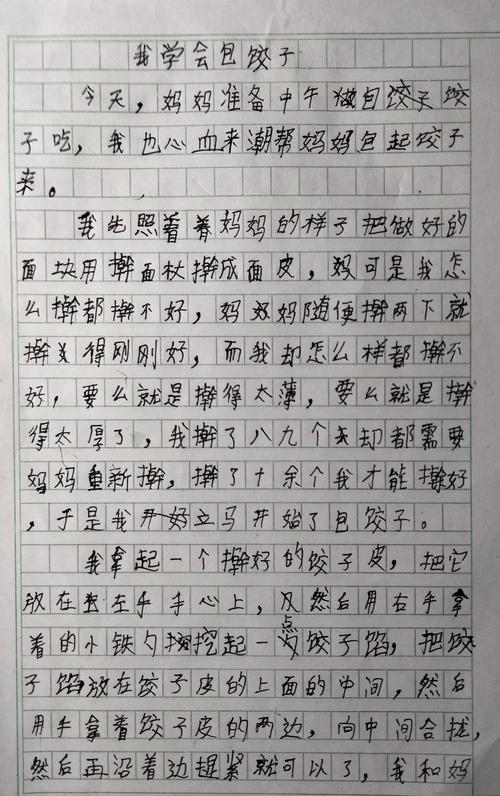 我学会包饺子
今天，妈妈准备中午做包饺子饺
子吃，我也心血来潮帮妈妈包起饺子
来。
我先照着着妈妈的样子把做好的
面块用擀面杖擀成面皮，妈可是我怎
么擀都擀不好，妈妈妈随便擀两下就
擀得刚刚好，而我却怎么样都擀不
好，要么就是擀得太薄，要么就是擀
得太厚了，我擀了八九个却都需要
妈妈重新擀，擀了十余个我才能擀好
，于是我开好立马开始了包饺子。
我拿起一个擀好的饺子皮，把它
放在左手手心上，然后用右手拿
着的小铁勺挖起一点饺子馅，把饺
子馅放在饺子皮的上面的中间，然后
用手拿着饺子皮的两边，向中间合拢，
然后再沿着边捏紧就可以了，我和妈